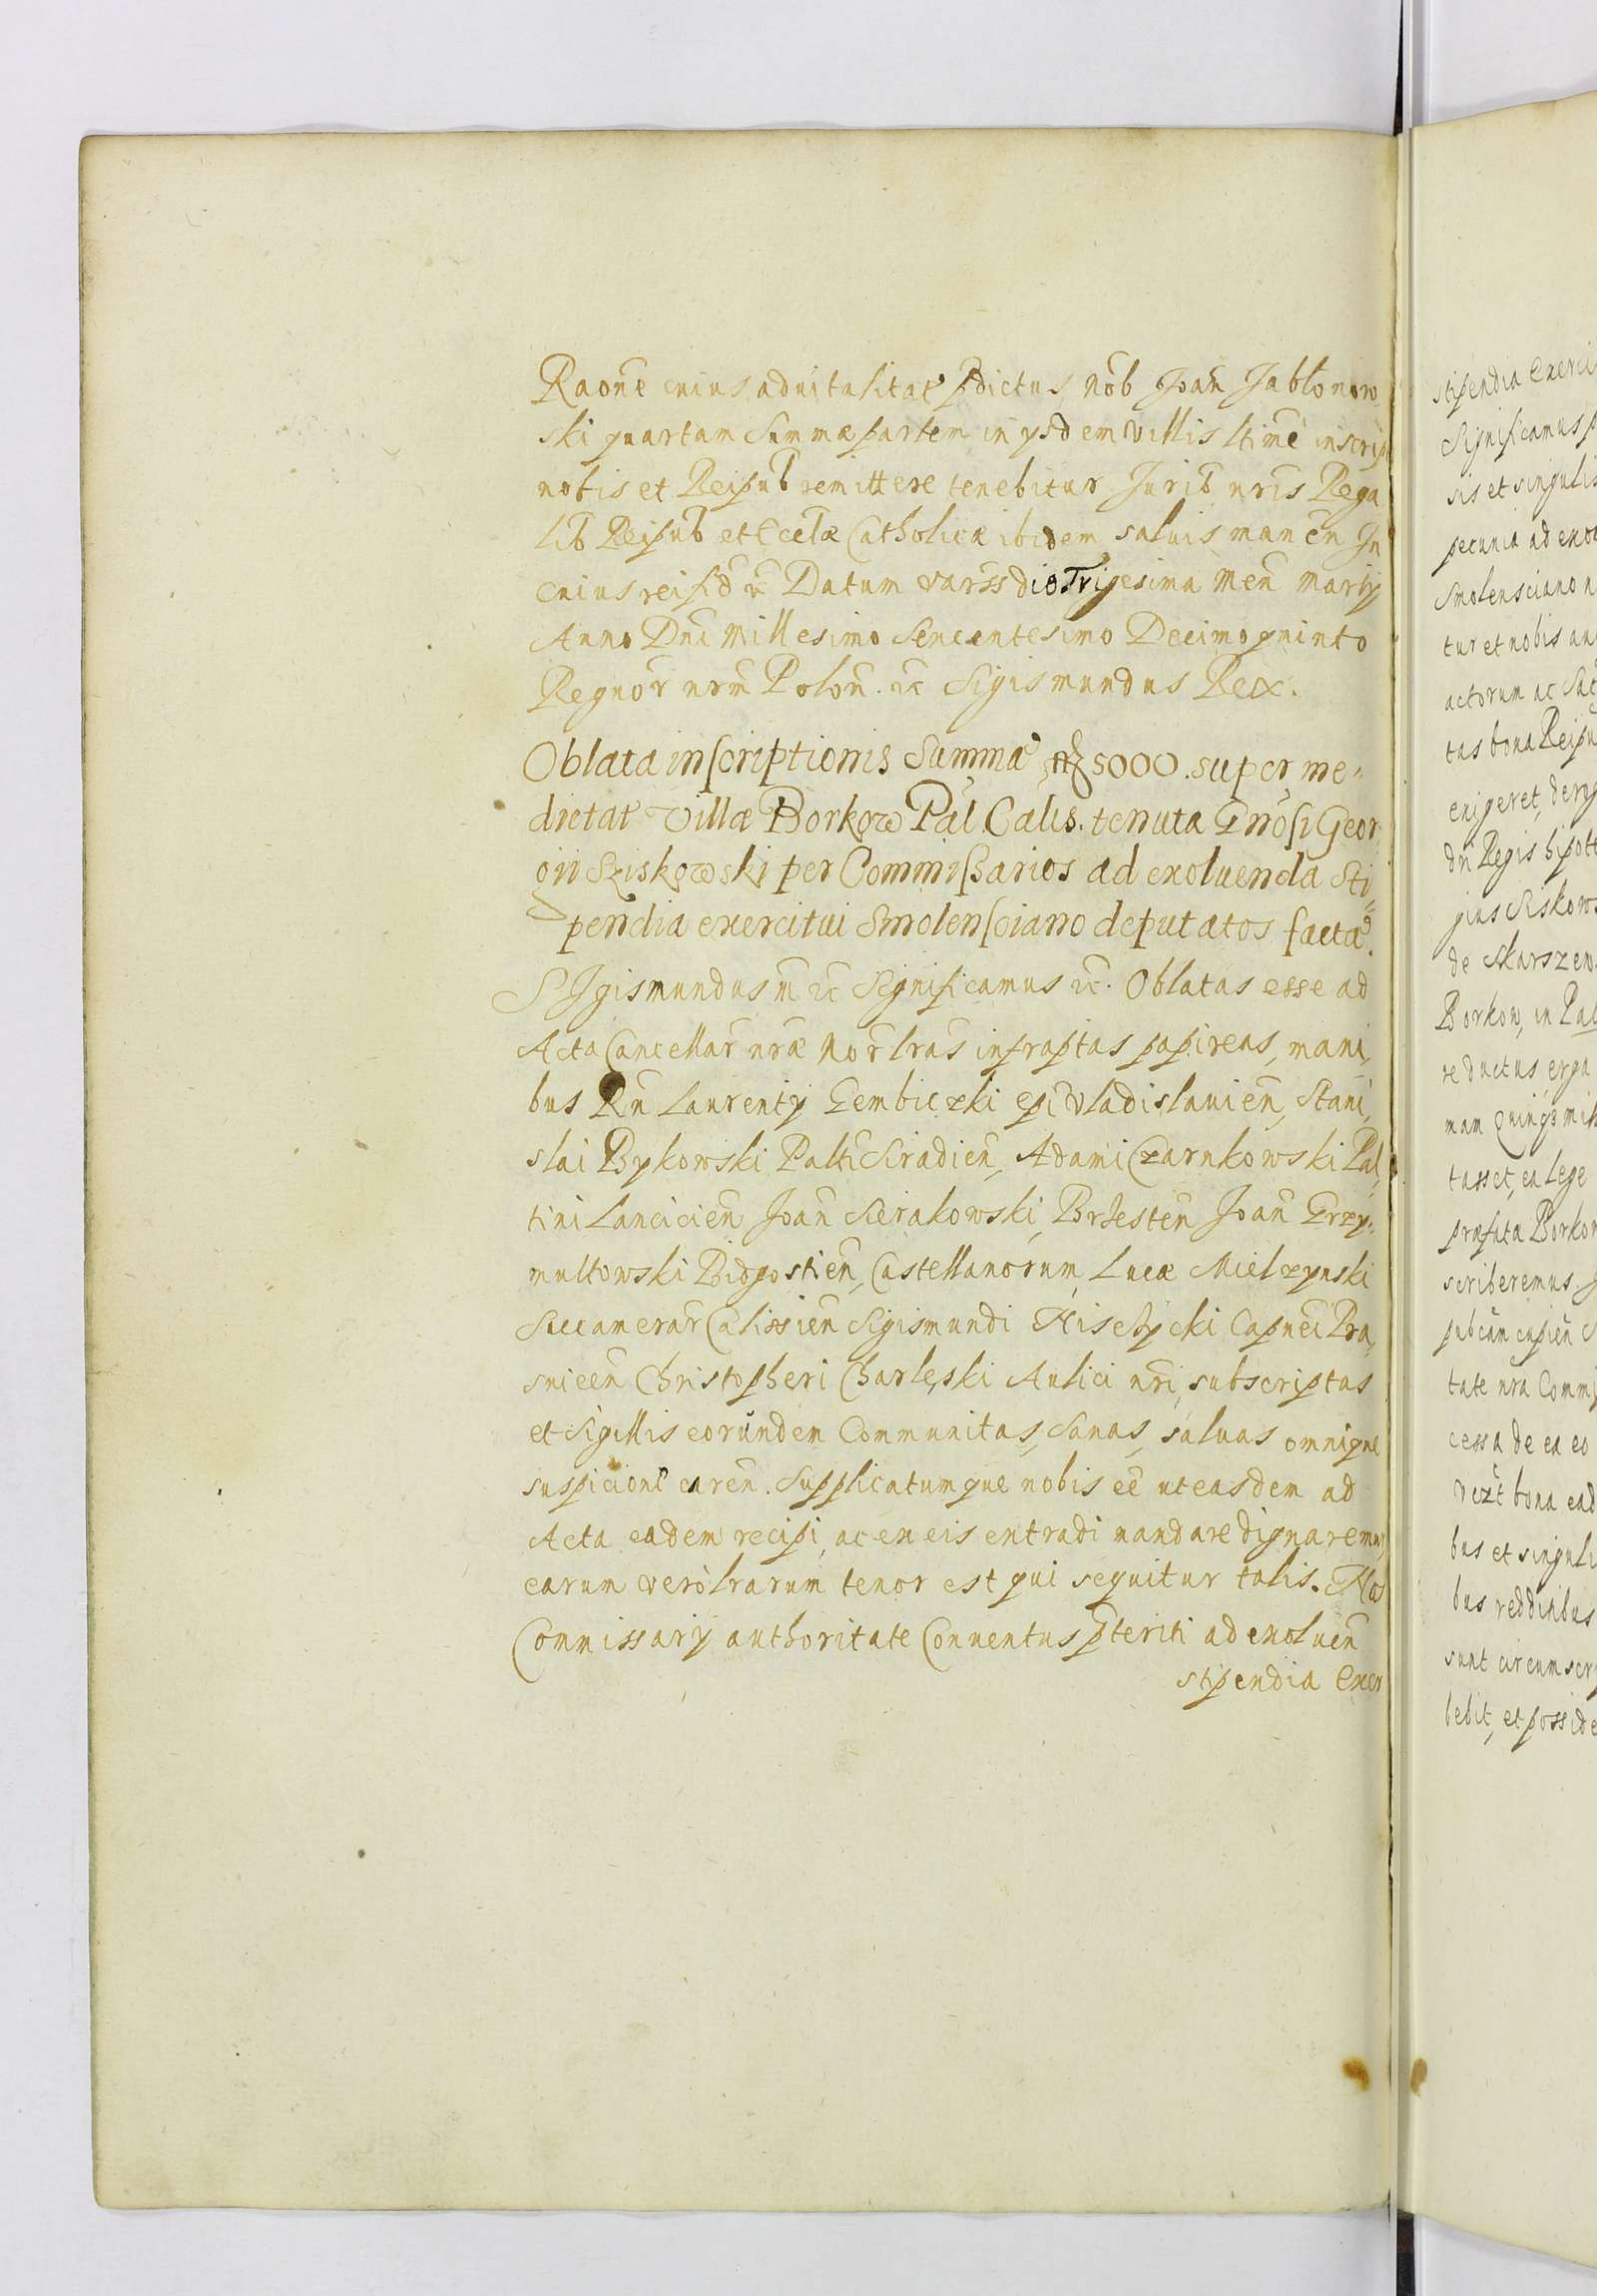 Raone cuius aduitalitat pdictus Nob Joan Jablonow
ski quartam Summæ partem in ysdem Villis ltime inscrip
nobis et Reipub remittere tenebitur Jurib nris Rega
lib Reipub et Eccłæ Catholicæ ibidem saluis manen In
cuius rei fid &c Datum Varss die Trigesima Men Martij
Anno Dni Millesimo Sexcentesimo Decimo quinto
Regnor nrm Polon. &c Sigismundus Rex.
Oblata inscriptionis Summa 5000. super me-
dietat Villæ Borkow Pal. Calis. tenuta Gnosi Geor
gii Sziskowski per Commissarios ad exoluenda Sti-
pendia exercitui Smolensciano deputatos factæ.
SIgismundus &c Significamus &c. Oblatas esse ad
Acta Cancellar nræ Nor lras infraptas papireas, mani,
bus Rn Laurentij Gembiczki Epi Vladislauien, Stani,
slai Bykowski Paltni Siradien, Adami Czarnkowski Pal,
tini Lancicien Joan Sierakowski, Brzesten Joan Grzy-
multowski Bidgostien, Castellanorum, Lucæ Mielzynski
Succamerar Calissien Sigismundi Nischycki Capnei Pra,
snicen Christopheri Charleski Aulici nri, subscriptas
et Sigillis eorundem Communitas, Sanas, saluas omnique
suspicione caren. Supplicatumque nobis ee ut easdem ad
Acta eadem recipi, ac ex eis extradi mandare dignaremur,
earum vero lrarum tenor est qui sequitur talis. Nos
Commissarij authoritate Conuentus pteriti ad exoluen
stipendia Exer
stipendia Exerci
Significamus p
sis et singulis
pecunia ad exo
Smolensciano n
tur et nobis au
actorum ac Sat
tas bona Reipu
exigeret, derog
dni Regis
gius Siskows
de Skarszew
Borkow, in Pal
reductus, erga
mam Quinq mil
tasset, ea lege
præfata Borkow
scriberemus. J
pubcum cupien
tate nra Commi
cessa de ea eo
bona ead
bus et singuli
bus redditibus
sunt circumscr
bebit, et posside